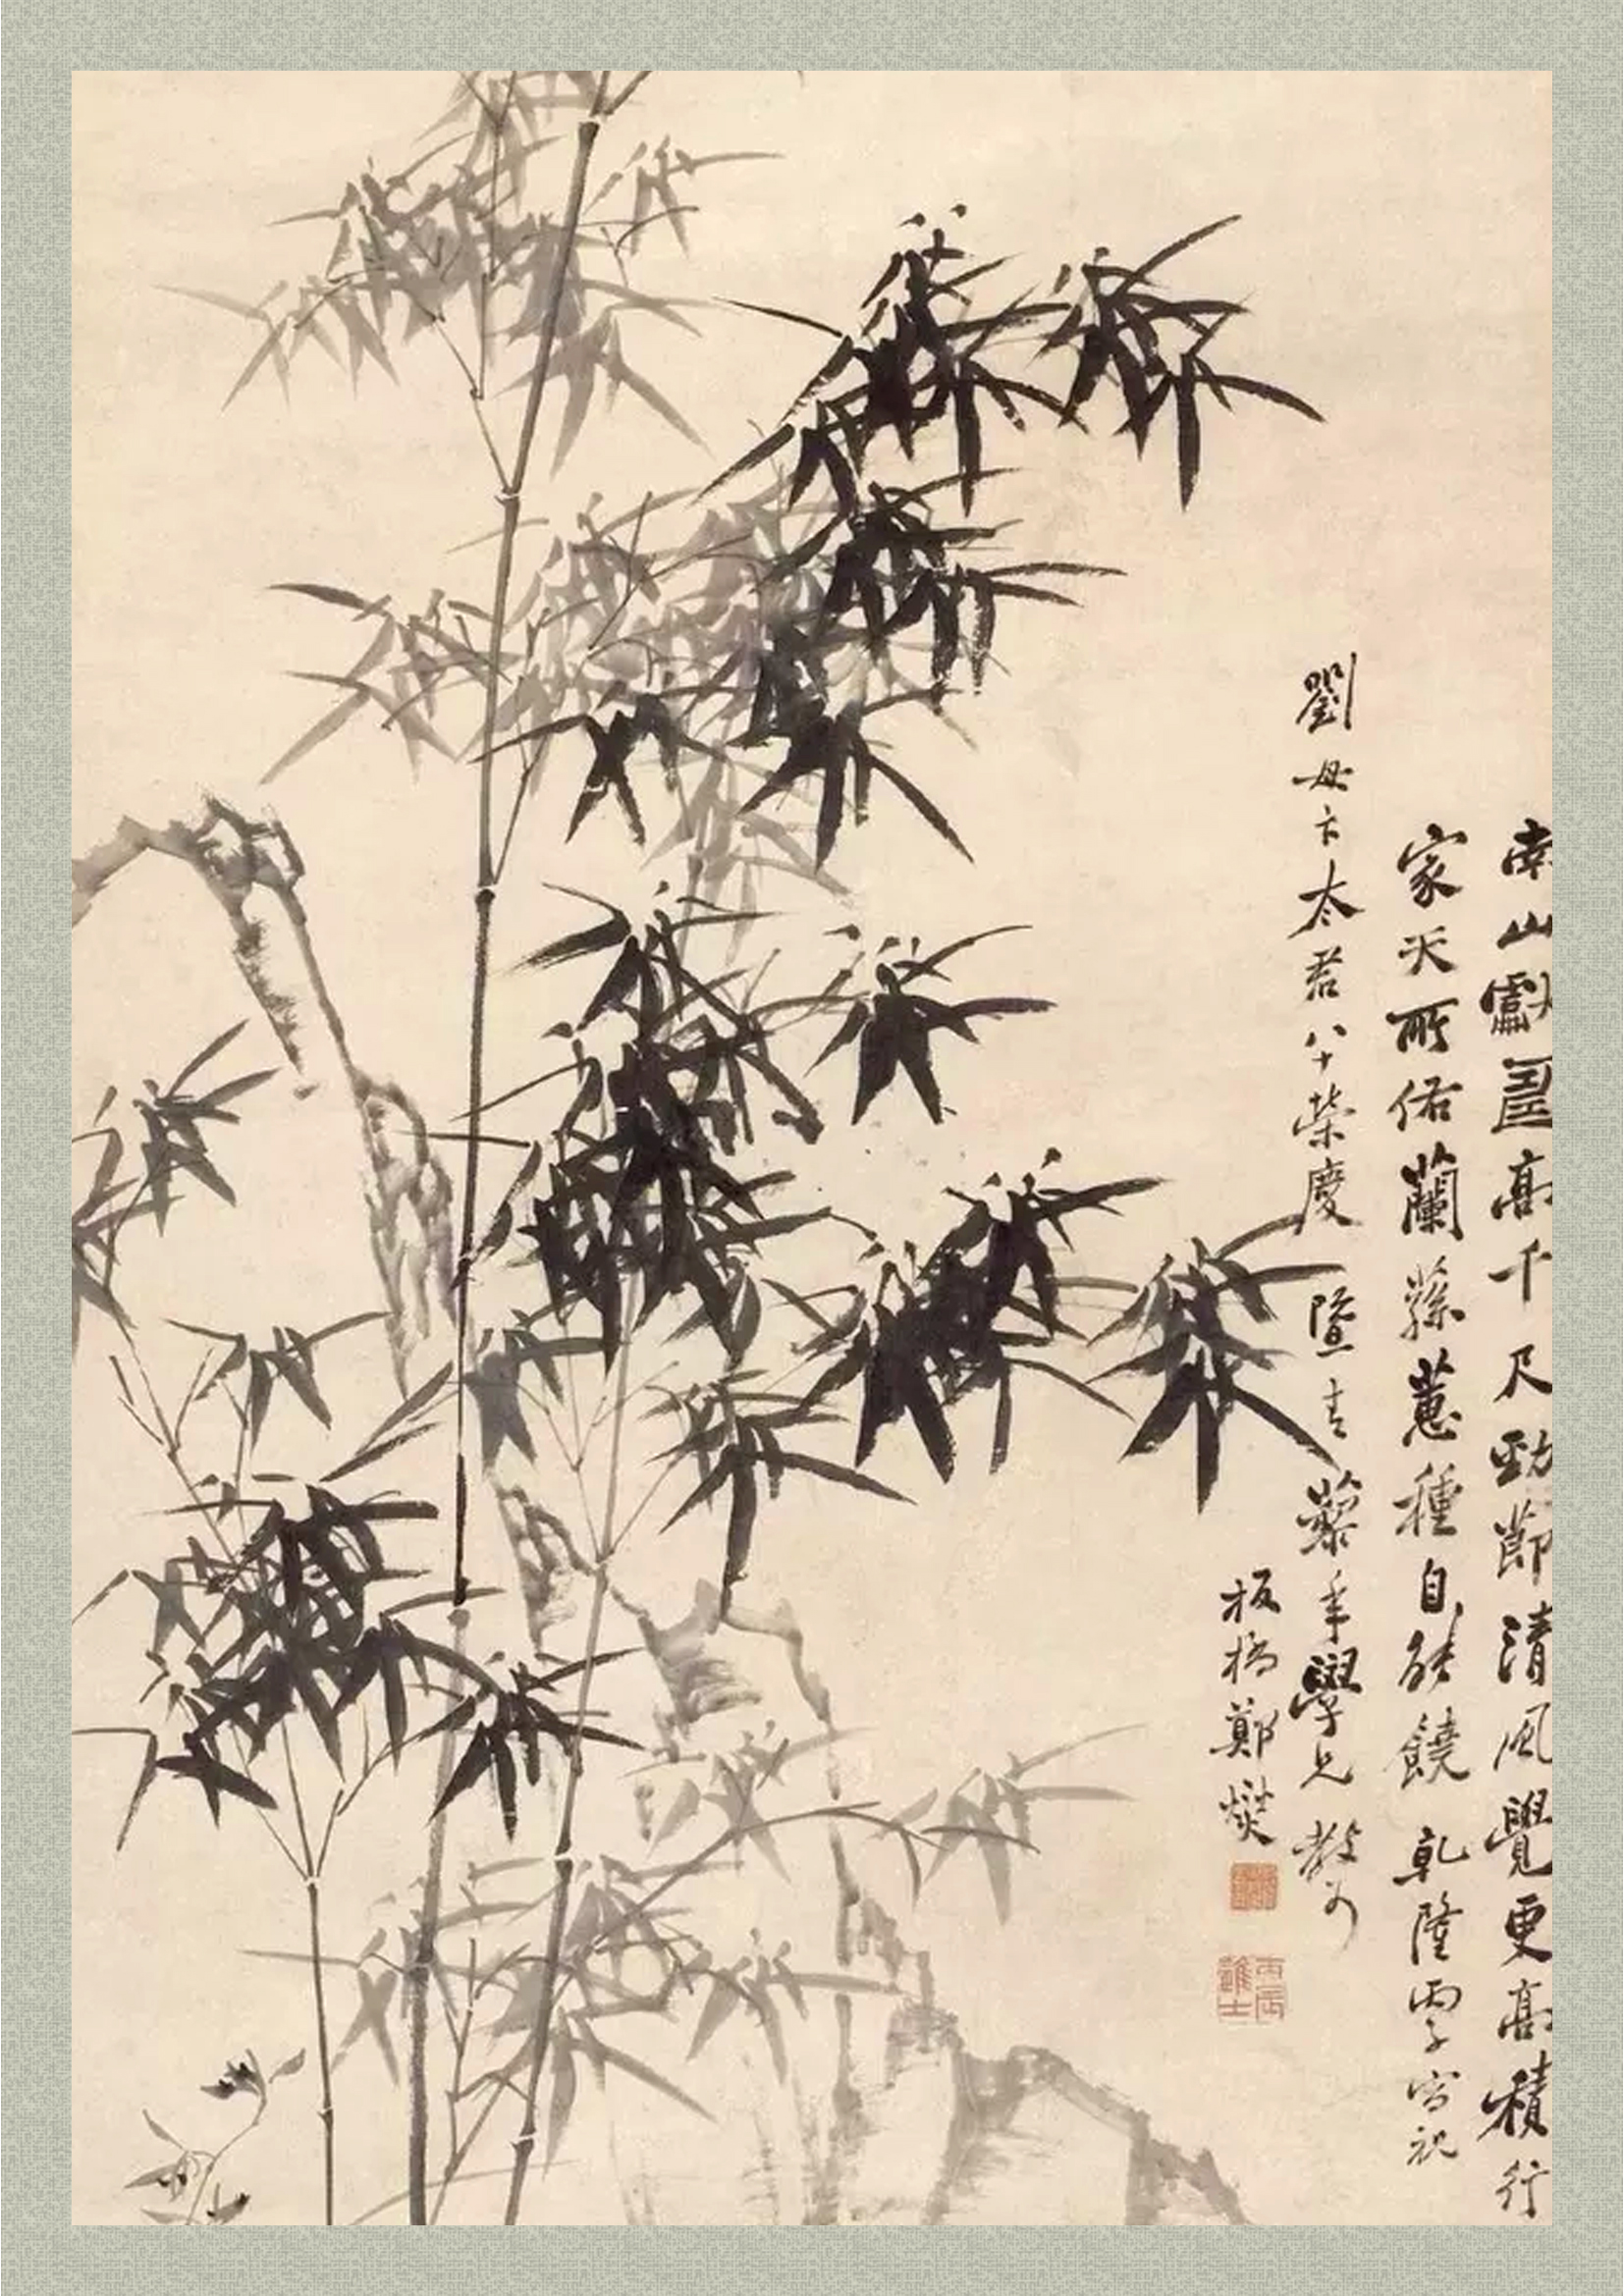 南山獻壽高千尺勁節清風覺更高積行
家天所佑蘭蓀蕙種自能饒 乾隆丙子寫祝
劉母卞太君八十榮慶 暨青藜年學兄教可
板橋鄭燮
丙辰進士